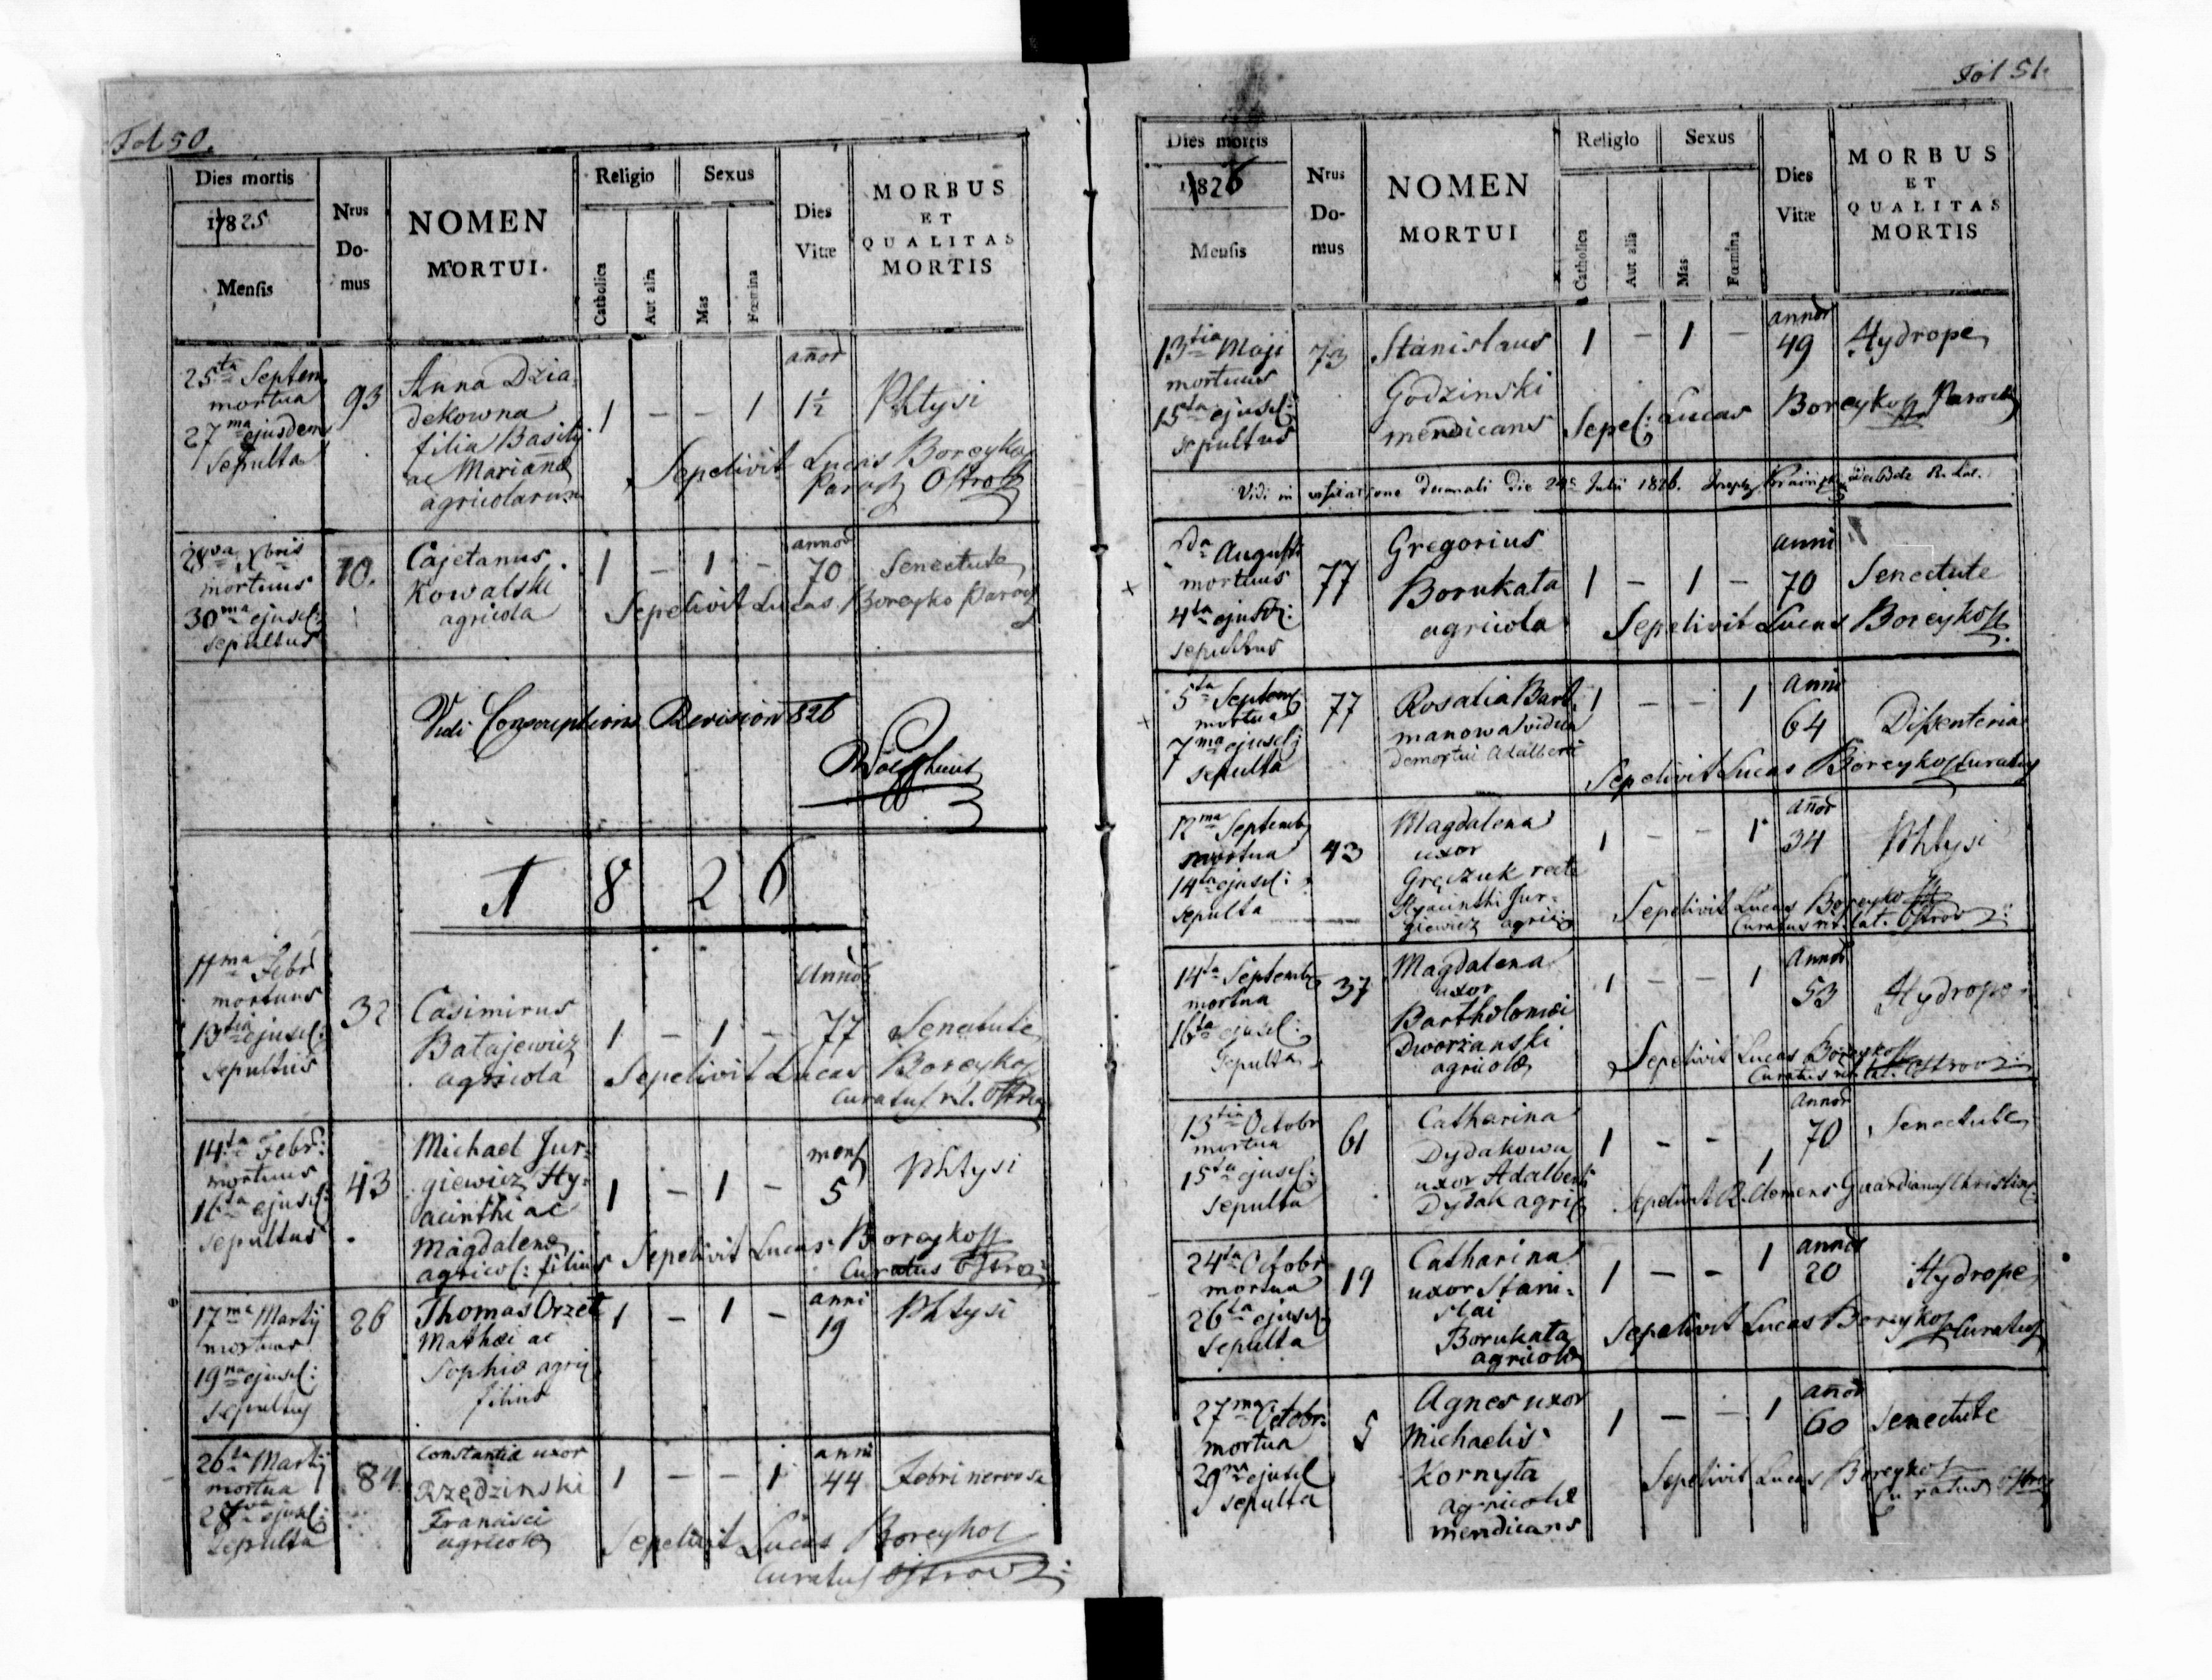 Fol 50.
Dies mortis
1825
Mensis
Nrus
Do-
mus
NOMEN
MORTUI.
Religio
Catholica
Aut alia
Sexus
Mas
Fœmina
Dies
Vitæ
MORBUS
ET
QUALITAS
MORTIS
25ta Septem
mortua
27ma ejusdem
Sepulta
93
Anna Dzia-
dekowna
filia Basilij
ac Marianæ
agricolarum
1 – – 1
añor
1½
Phtysi
Sepelivit Lucas Boreyko
Paroch Ostrov
28va Xbris
mortuus
30ma ejusd:
sepultus
70.
Cajetanus
Kowalski
agricola
1 – 1 –
annor
70
Senectute
Sepelivit Lucas Boreyko Paroch
Vidi Conscriptionis Revision 826
1826
11ma Febr
mortuus
13tia ejusd:
sepultus
32
Casimirus
Batajewicz
agricola
1 – 1 –
Annor
77
Senectute
Sepelivit Lucas Boreyko
Curatus r. l. Ostrov
14ta Febr:
mortuus
16ta ejusd:
sepultus
43
Michael Jur-
giewicz Hy-
acinthi ac
Magdalenæ
agricol: filius
1 – 1 –
mens
5
Phtysi
Sepelivit Lucas Boreyko
Curatus Ostrov:
17ma Martij
mortuus
19na ejusd:
sepultus
26
Thomas Orzeł
Mathæi ac
Sophiæ agric
filius
1 – 1 –
anni
19
Phtysi
26ta Martij
mortua
28va ejusd:
sepulta
84
Constantia uxor
Rzędzinski
Francisci
agricolæ
1 – – 1
anni
44
Febri nervosa
Sepelivit Lucas Boreyko
Curatus Ostrov:
Fol 51.
Dies mortis
1826
Mensis
Nrus
Do-
mus
NOMEN
MORTUI
Religio
Catholica
Aut alia
Sexus
Mas
Fœmina
Dies
Vitæ
MORBUS
ET
QUALITAS
MORTIS
13tia Maji
mortuus
15ta ejusd:
sepultus
73
Stanislaus
Godzinski
mendicans
1 – 1 –
annor
49
Hydrope
Sepel: Lucas Boreyko Paroch
Vidi in visitatione Decanali Die 24 Julii 1826.
da Augusti
mortuus
4ta ejusd:
sepultus
77
Gregorius
Borukata
agricola
1 – 1 –
anni
70
Senectute
Sepelivit Lucas Boreyko
5ta Septem
mortua
7ma ejusd:
sepulta
77
Rosalia Bart-
manowa vidua
demortui Adalberti
1 – – 1
Anni
64
Dissenteria
Sepelivit Lucas Boreyko Curatus
12ma Septemb
mortua
14ta ejusd:
sepulta
43
Magdalena
uxor
Gręczuk recte
Hyacinthi Jur-
giewicz agric:
1 – – 1
añor
34
Phtysi
Sepelivit Lucas Boreyko
Curatus rit. lat. Ostrov:
14ta Septemb
mortua
16ta ejusd:
Sepulta
37
Magdalena
uxor
Bartholomæi
Dworzanski
agricolæ
1 – – 1
Annor
53
Hydrope
Sepelivit Lucas Boreyko
Curatus rit. lat. Ostrov:
13tia Octobr
mortua
15ta ejusd:
sepulta
61
Catharina
Dydakowa
uxor Adalberti
Dydak agric
1 – – 1
Annor
70
Senectute
Sepelivit R. Clemens Guardianus
24ta Octobr
mortua
26ta ejusd
Sepulta
19
Catharina
uxor Stani-
slai
Borukata
agricolæ
1 – – 1
annor
20
Hydrope
Sepelivit Lucas Boreyko Curatus
27ma Octobr:
mortua
29na ejusd
sepulta
5
Agnes uxor
Michaelis
Kornyta
agricolæ
mendicans
1 – – 1
añor
60
Senectute
Sepelivit Lucas Boreyko
Curatus Ostrov